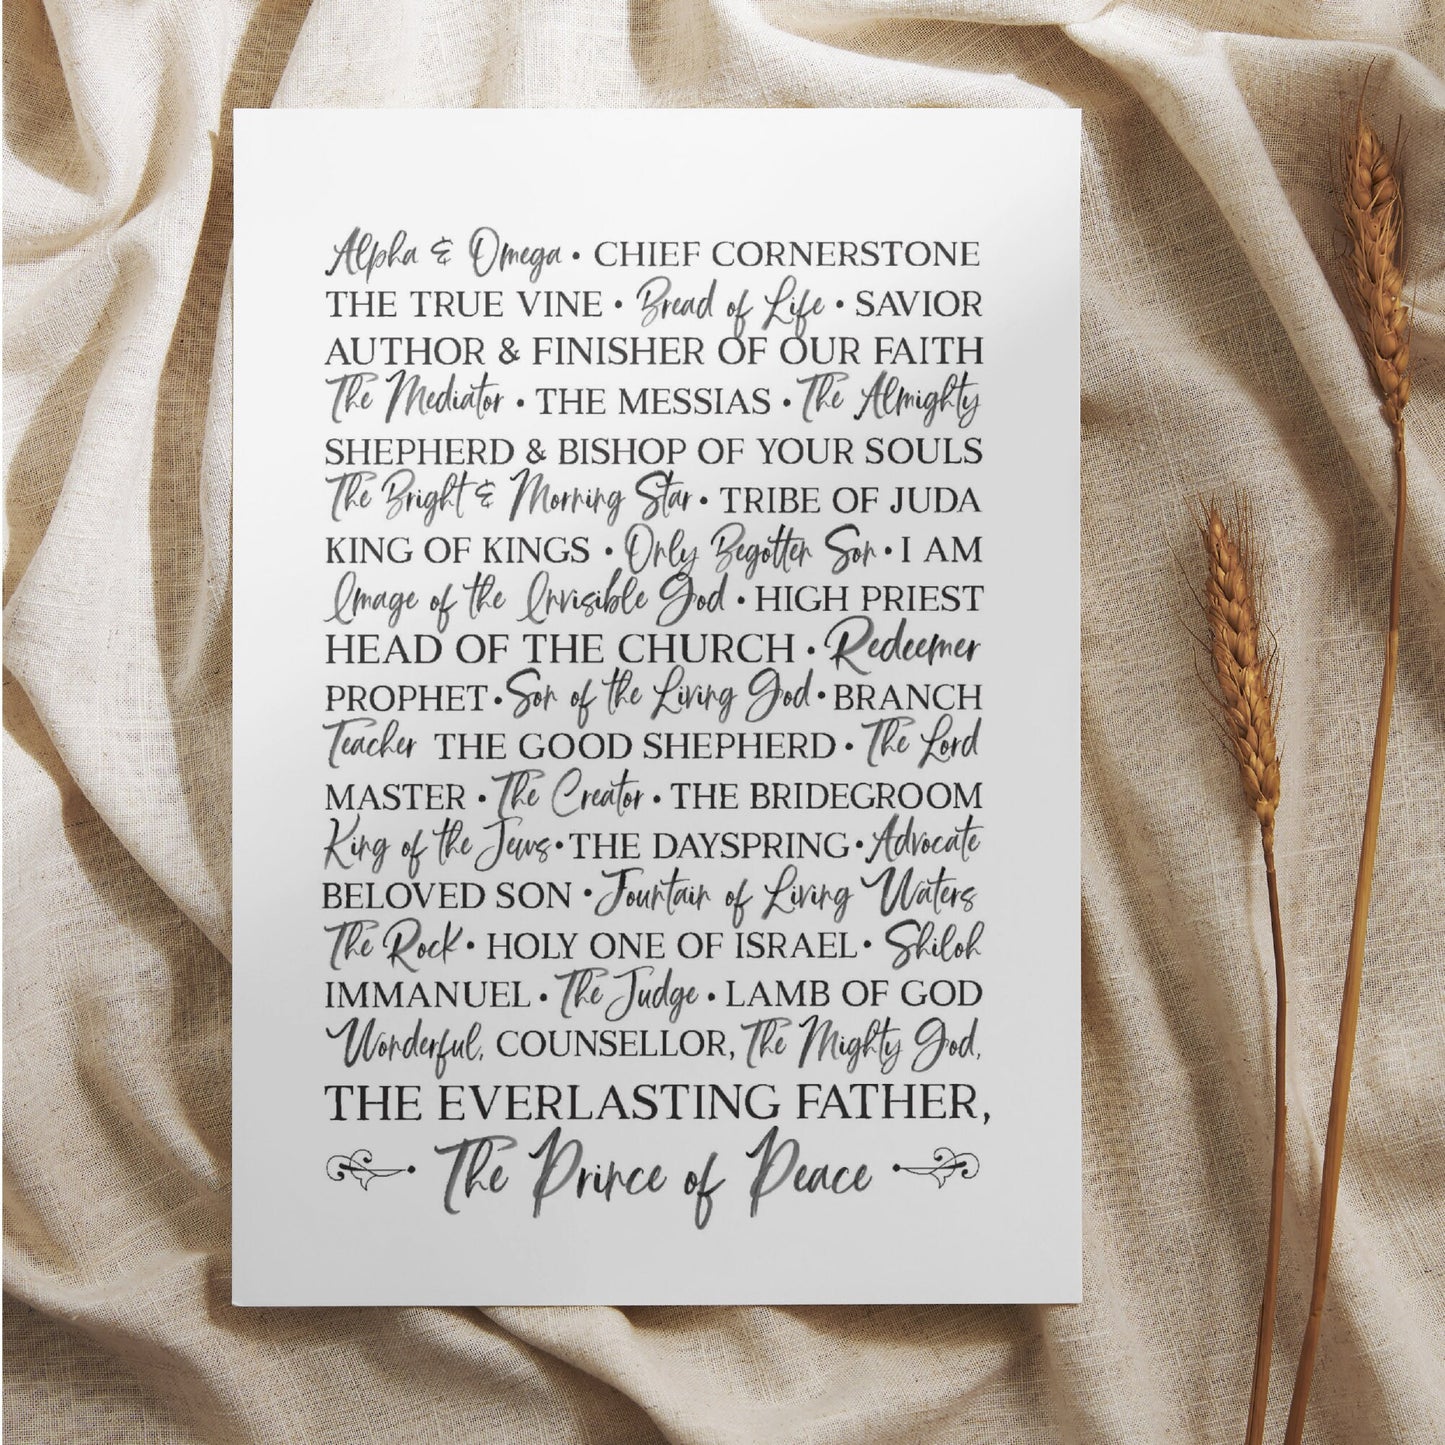 Alpha & Omega • CHIEF CORNERSTONE
THE TRUE VINE • Bread of Life • SAVIOR
AUTHOR & FINISHER OF OUR FAITH
The Mediator • THE MESSIAS • The Almighty
SHEPHERD & BISHOP OF YOUR SOULS
The Bright & Morning Star • TRIBE OF JUDA
KING OF KINGS • Only Begotten Son • I AM
Image of the Invisible God • HIGH PRIEST
HEAD OF THE CHURCH • Redeemer
PROPHET • Son of the Living God • BRANCH
Teacher THE GOOD SHEPHERD • The Lord
MASTER • The Creator • THE BRIDEGROOM
King of the Jews • THE DAYSPRING • Advocate
BELOVED SON • Fountain of Living Waters
The Rock • HOLY ONE OF ISRAEL • Shiloh
IMMANUEL • The Judge • LAMB OF GOD
Wonderful, COUNSELLOR, The Mighty God,
THE EVERLASTING FATHER,
The Prince of Peace